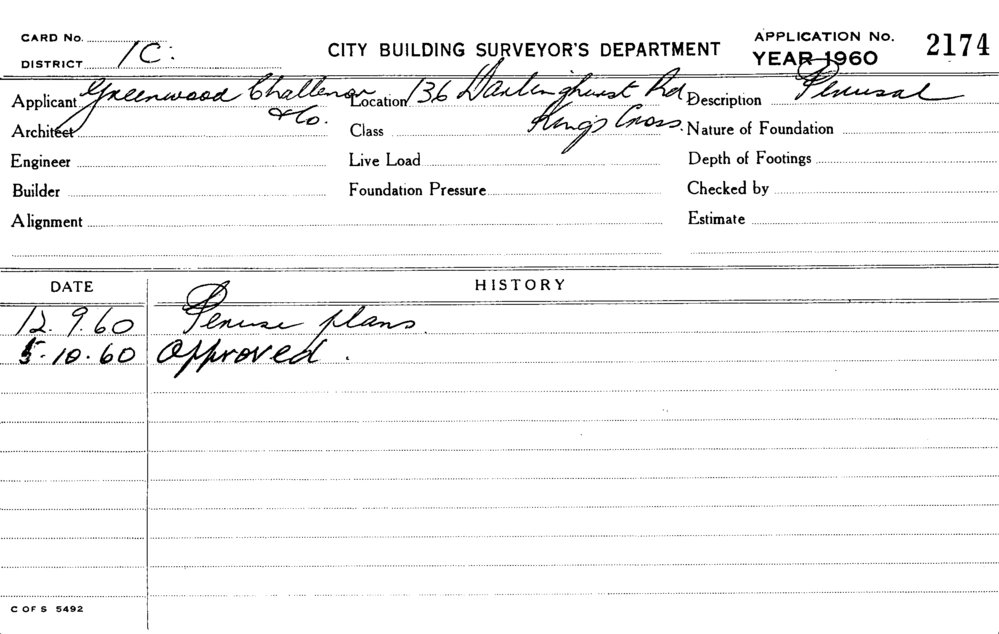 CARD No.
DISTRICT 1C.
CITY BUILDING SURVEYOR'S DEPARTMENT
APPLICATION No. 2174
YEAR 1960
Applicant Greenwood Challenor & Co.
Location 136 Darlinghurst Rd Kings Cross.
Description Perusal
Architect
Class
Nature of Foundation
Engineer
Live Load
Depth of Footings
Builder
Foundation Pressure
Checked by
Alignment
Estimate
DATE HISTORY
12.9.60 Peruse plans.
5.10.60 Approved.
C OF S 5492